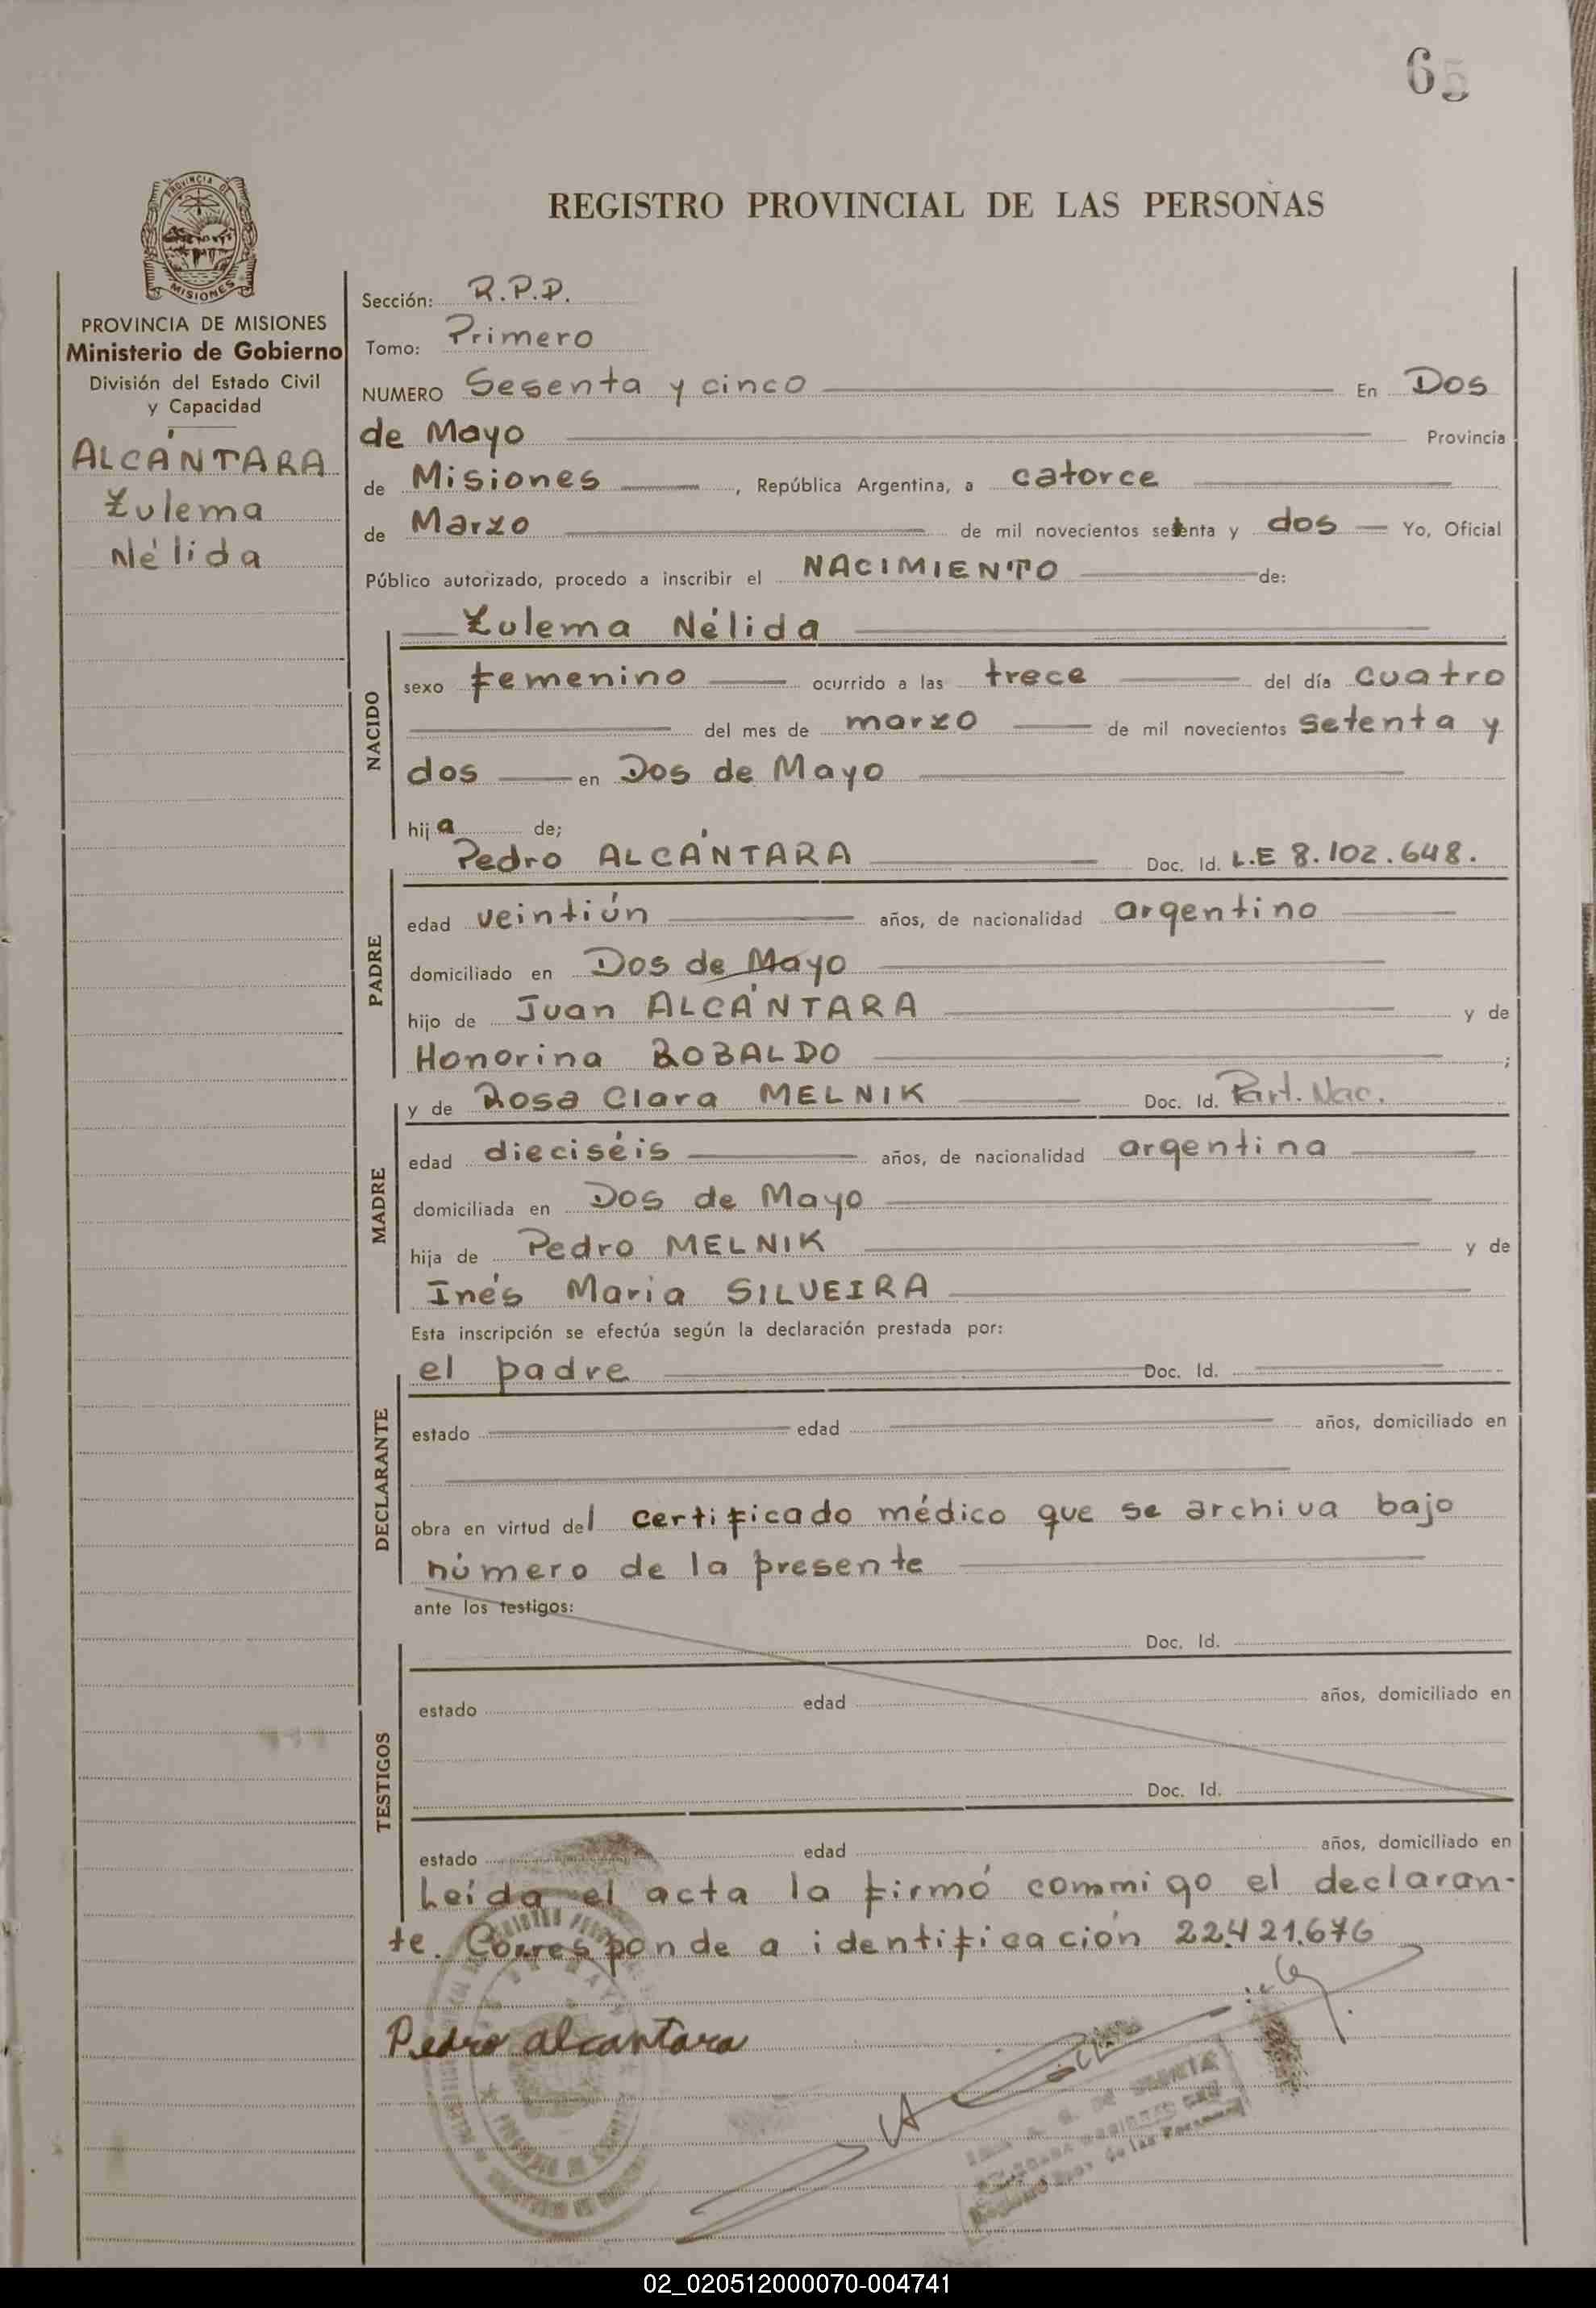 65
REGISTRO PROVINCIAL DE LAS PERSONAS
PROVINCIA DE
MISIONES
PROVINCIA DE MISIONES
Ministerio de Gobierno
División del Estado Civil
y Capacidad
ALCÁNTARA
Zulema
Nélida
Sección: R.P.P.
Tomo: Primero
NUMERO Sesenta y cinco En Dos
de Mayo Provincia
de Misiones, República Argentina, a catorce
de Marzo de mil novecientos setenta y dos Yo, Oficial
Público autorizado, procedo a inscribir el NACIMIENTO de:
NACIDO
Zulema Nélida
sexo femenino ocurrido a las trece del día cuatro
del mes de marzo de mil novecientos setenta y
dos en Dos de Mayo
hija de;
PADRE
Pedro ALCÁNTARA Doc. Id. L.E 8.102.648.
edad veintiún años, de nacionalidad argentino
domiciliado en Dos de Mayo
hijo de Juan ALCÁNTARA y de
Honorina ROBALDO ;
MADRE
y de Rosa Clara MELNIK Doc. Id. Part. Nac.
edad dieciséis años, de nacionalidad argentina
domiciliada en Dos de Mayo
hija de Pedro MELNIK y de
Inés Maria SILVEIRA
Esta inscripción se efectúa según la declaración prestada por:
DECLARANTE
el padre Doc. Id.
estado edad años, domiciliado en
obra en virtud del certificado médico que se archiva bajo
número de la presente
ante los testigos:
TESTIGOS
Doc. Id.
estado edad años, domiciliado en
Doc. Id.
estado edad años, domiciliado en
Leída el acta la firmó commigo el declaran-
te. Corresponde a identificación 22.421.676
Pedro alcantara
02_020512000070-004741